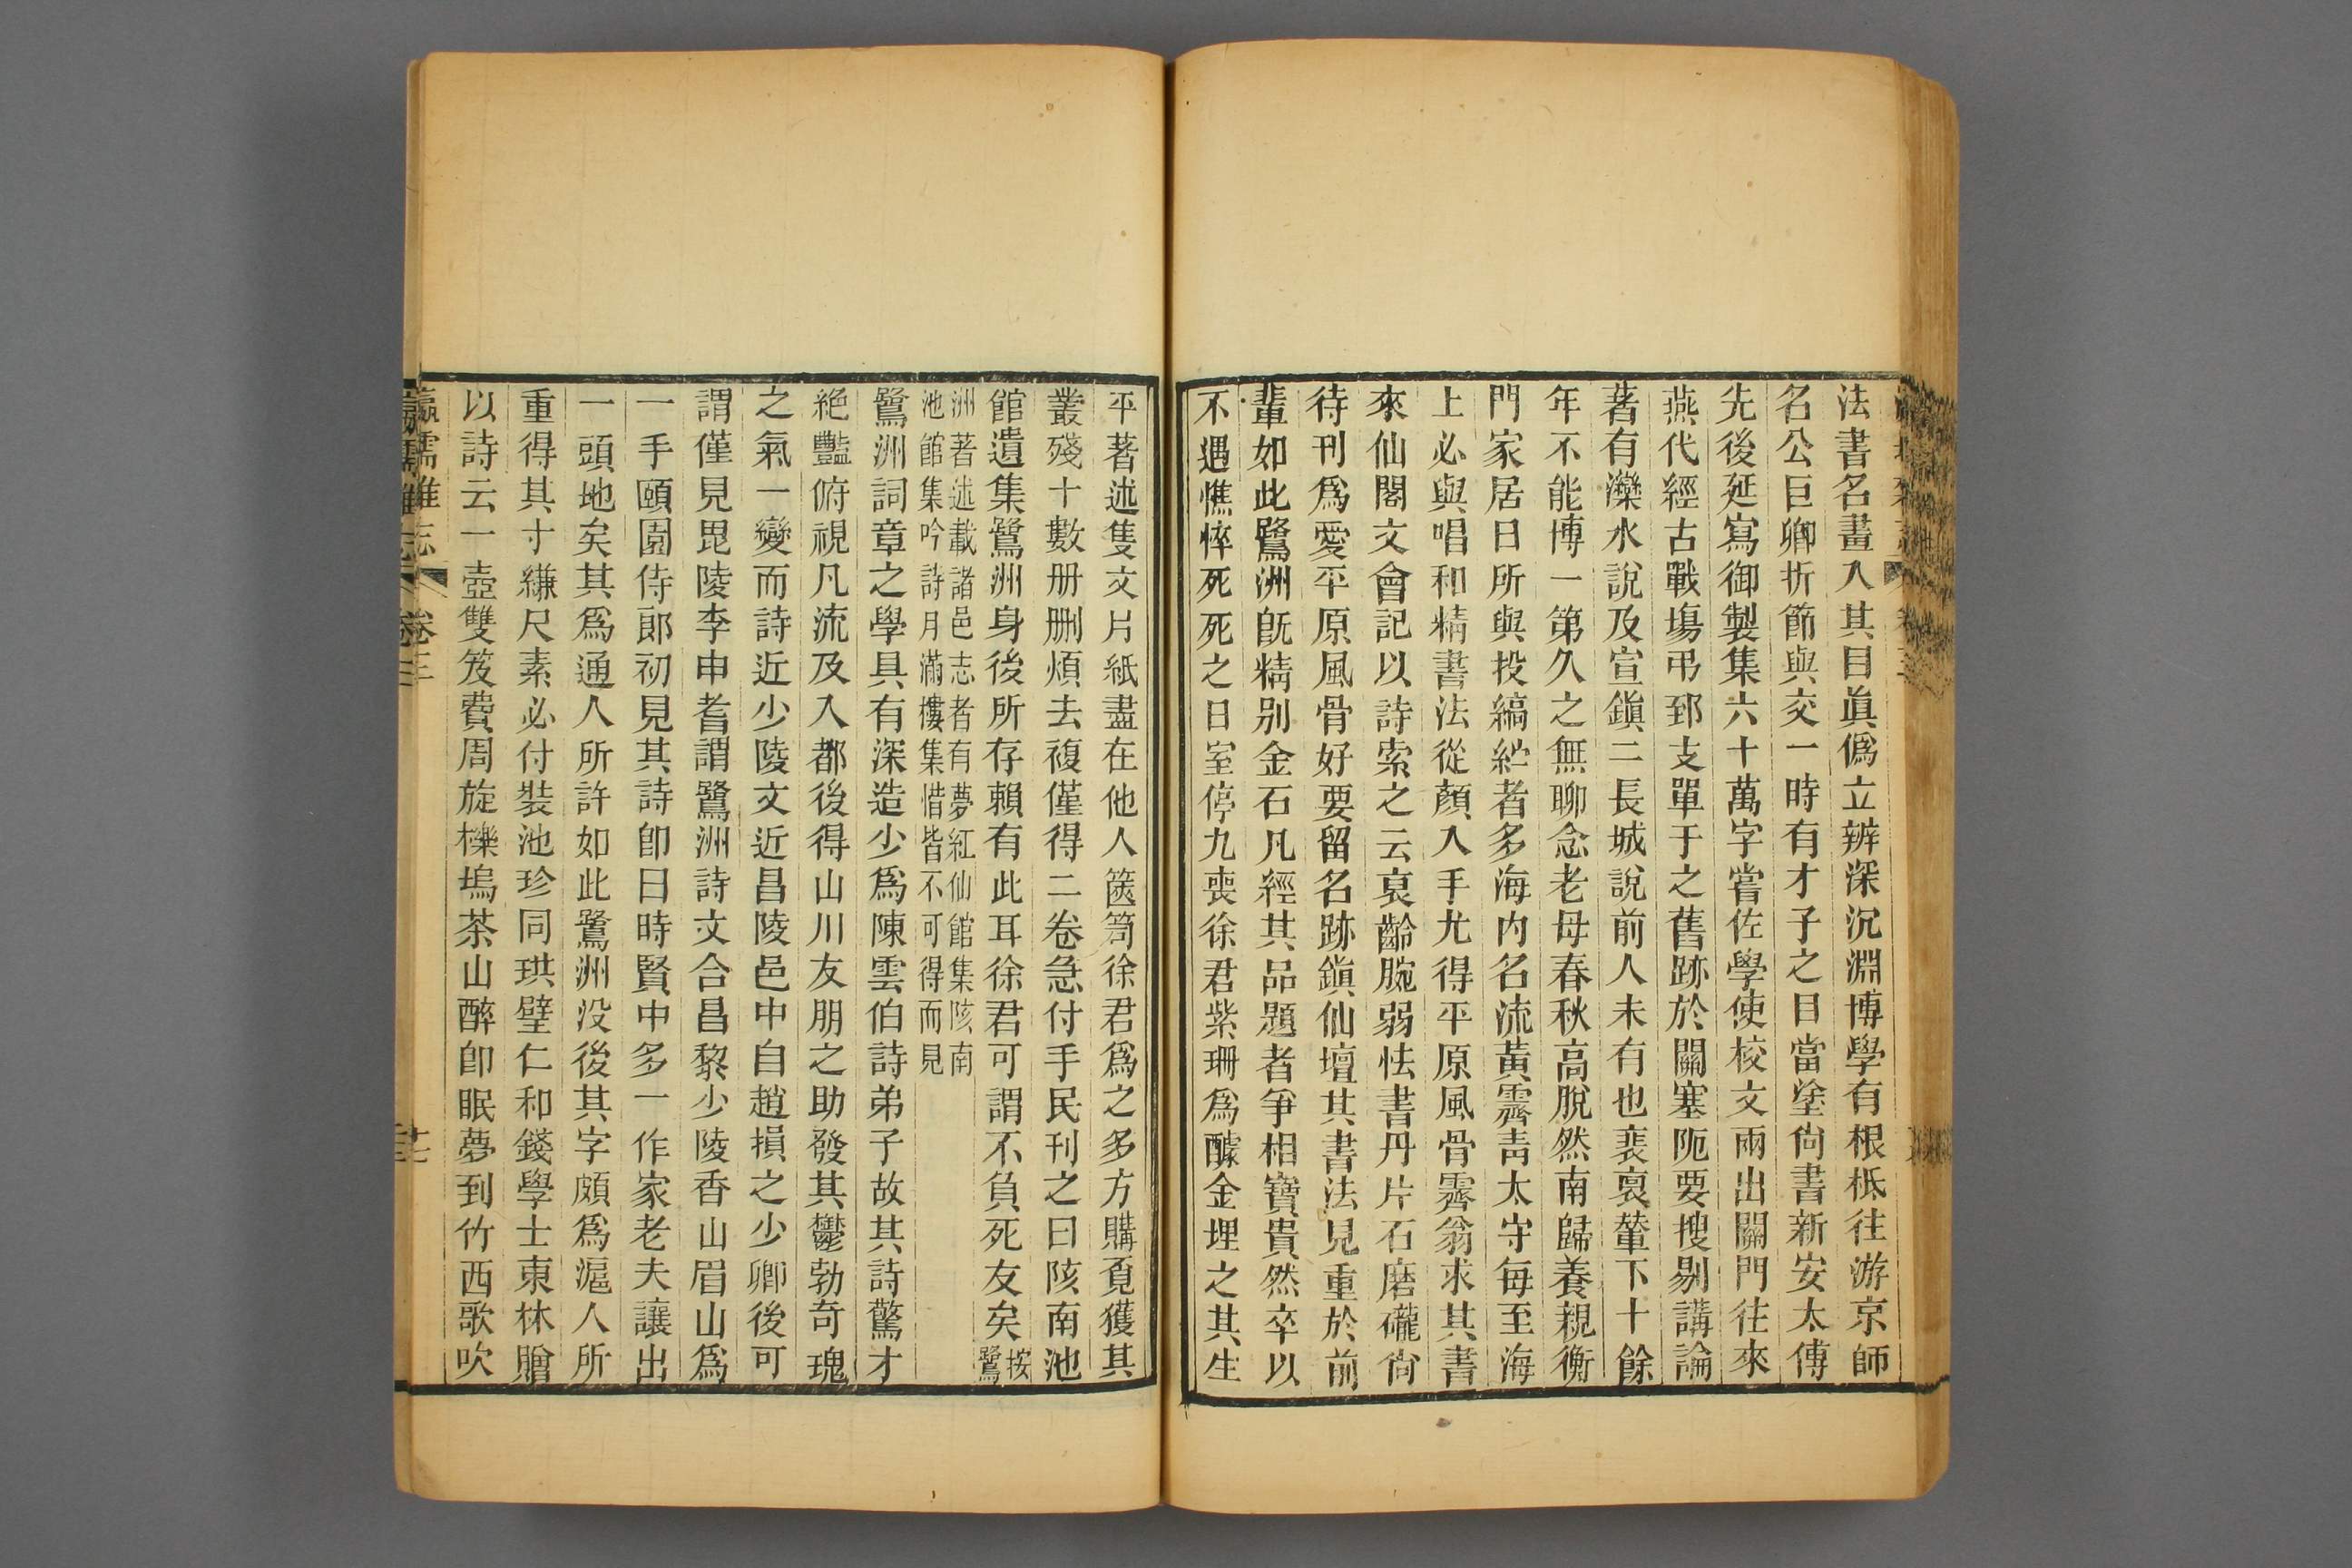 法書名畫入其目眞僞立辨深沉淵博學有根柢往游京師
名公巨卿折節與交一時有才子之目當塗尙書新安太傅
先後延寫御製集六十萬字嘗佐學使校文兩出關門往來
燕代經古戰塲弔郅支單于之舊跡於關塞阨要搜剔講論
著有灤水說及宣鎭二長城說前人未有也裴裒輦下十餘
年不能博一第久之無聊念老母春秋高脫然南歸養親衡
門家居日所與投縞紵者多海内名流黃霽靑太守每至海
上必與唱和精書法從顏入手尤得平原風骨霽翁求其書
來仙閣文會記以詩索之云衰齡腕弱怯書丹片石磨礲尙
待刊爲愛平原風骨好要留名跡鎭仙壇其書法見重於前
輩如此鷺洲旣精别金石凡經其品題者爭相寶貴然卒以
不遇憔悴死死之日室停九喪徐君紫珊爲醵金埋之其生
平著述隻文片紙盡在他人篋笥徐君爲之多方購覓獲其
叢殘十數册删煩去複僅得二卷急付手民刊之曰陔南池
館遺集鷺洲身後所存賴有此耳徐君可謂不負死友矣按鷺
洲著述載諸邑志者有夢紅仙館集陔南
池館集吟詩月滿樓集惜皆不可得而見
鷺洲詞章之學具有深造少爲陳雲伯詩弟子故其詩驚才
絶豔俯視凡流及入都後得山川友朋之助發其鬱勃奇瑰
之氣一變而詩近少陵文近昌陵邑中自趙損之少卿後可
謂僅見毘陵李申耆謂鷺洲詩文合昌黎少陵香山眉山爲
一手頤園侍郎初見其詩卽曰時賢中多一作家老夫讓出
一頭地矣其爲通人所許如此鷺洲没後其字頗爲滬人所
重得其寸縑尺素必付裝池珍同珙璧仁和錢學士東林贈
以詩云一壺雙笈費周旋櫟塢茶山醉卽眠夢到竹西歌吹
瀛壖雜志
卷三